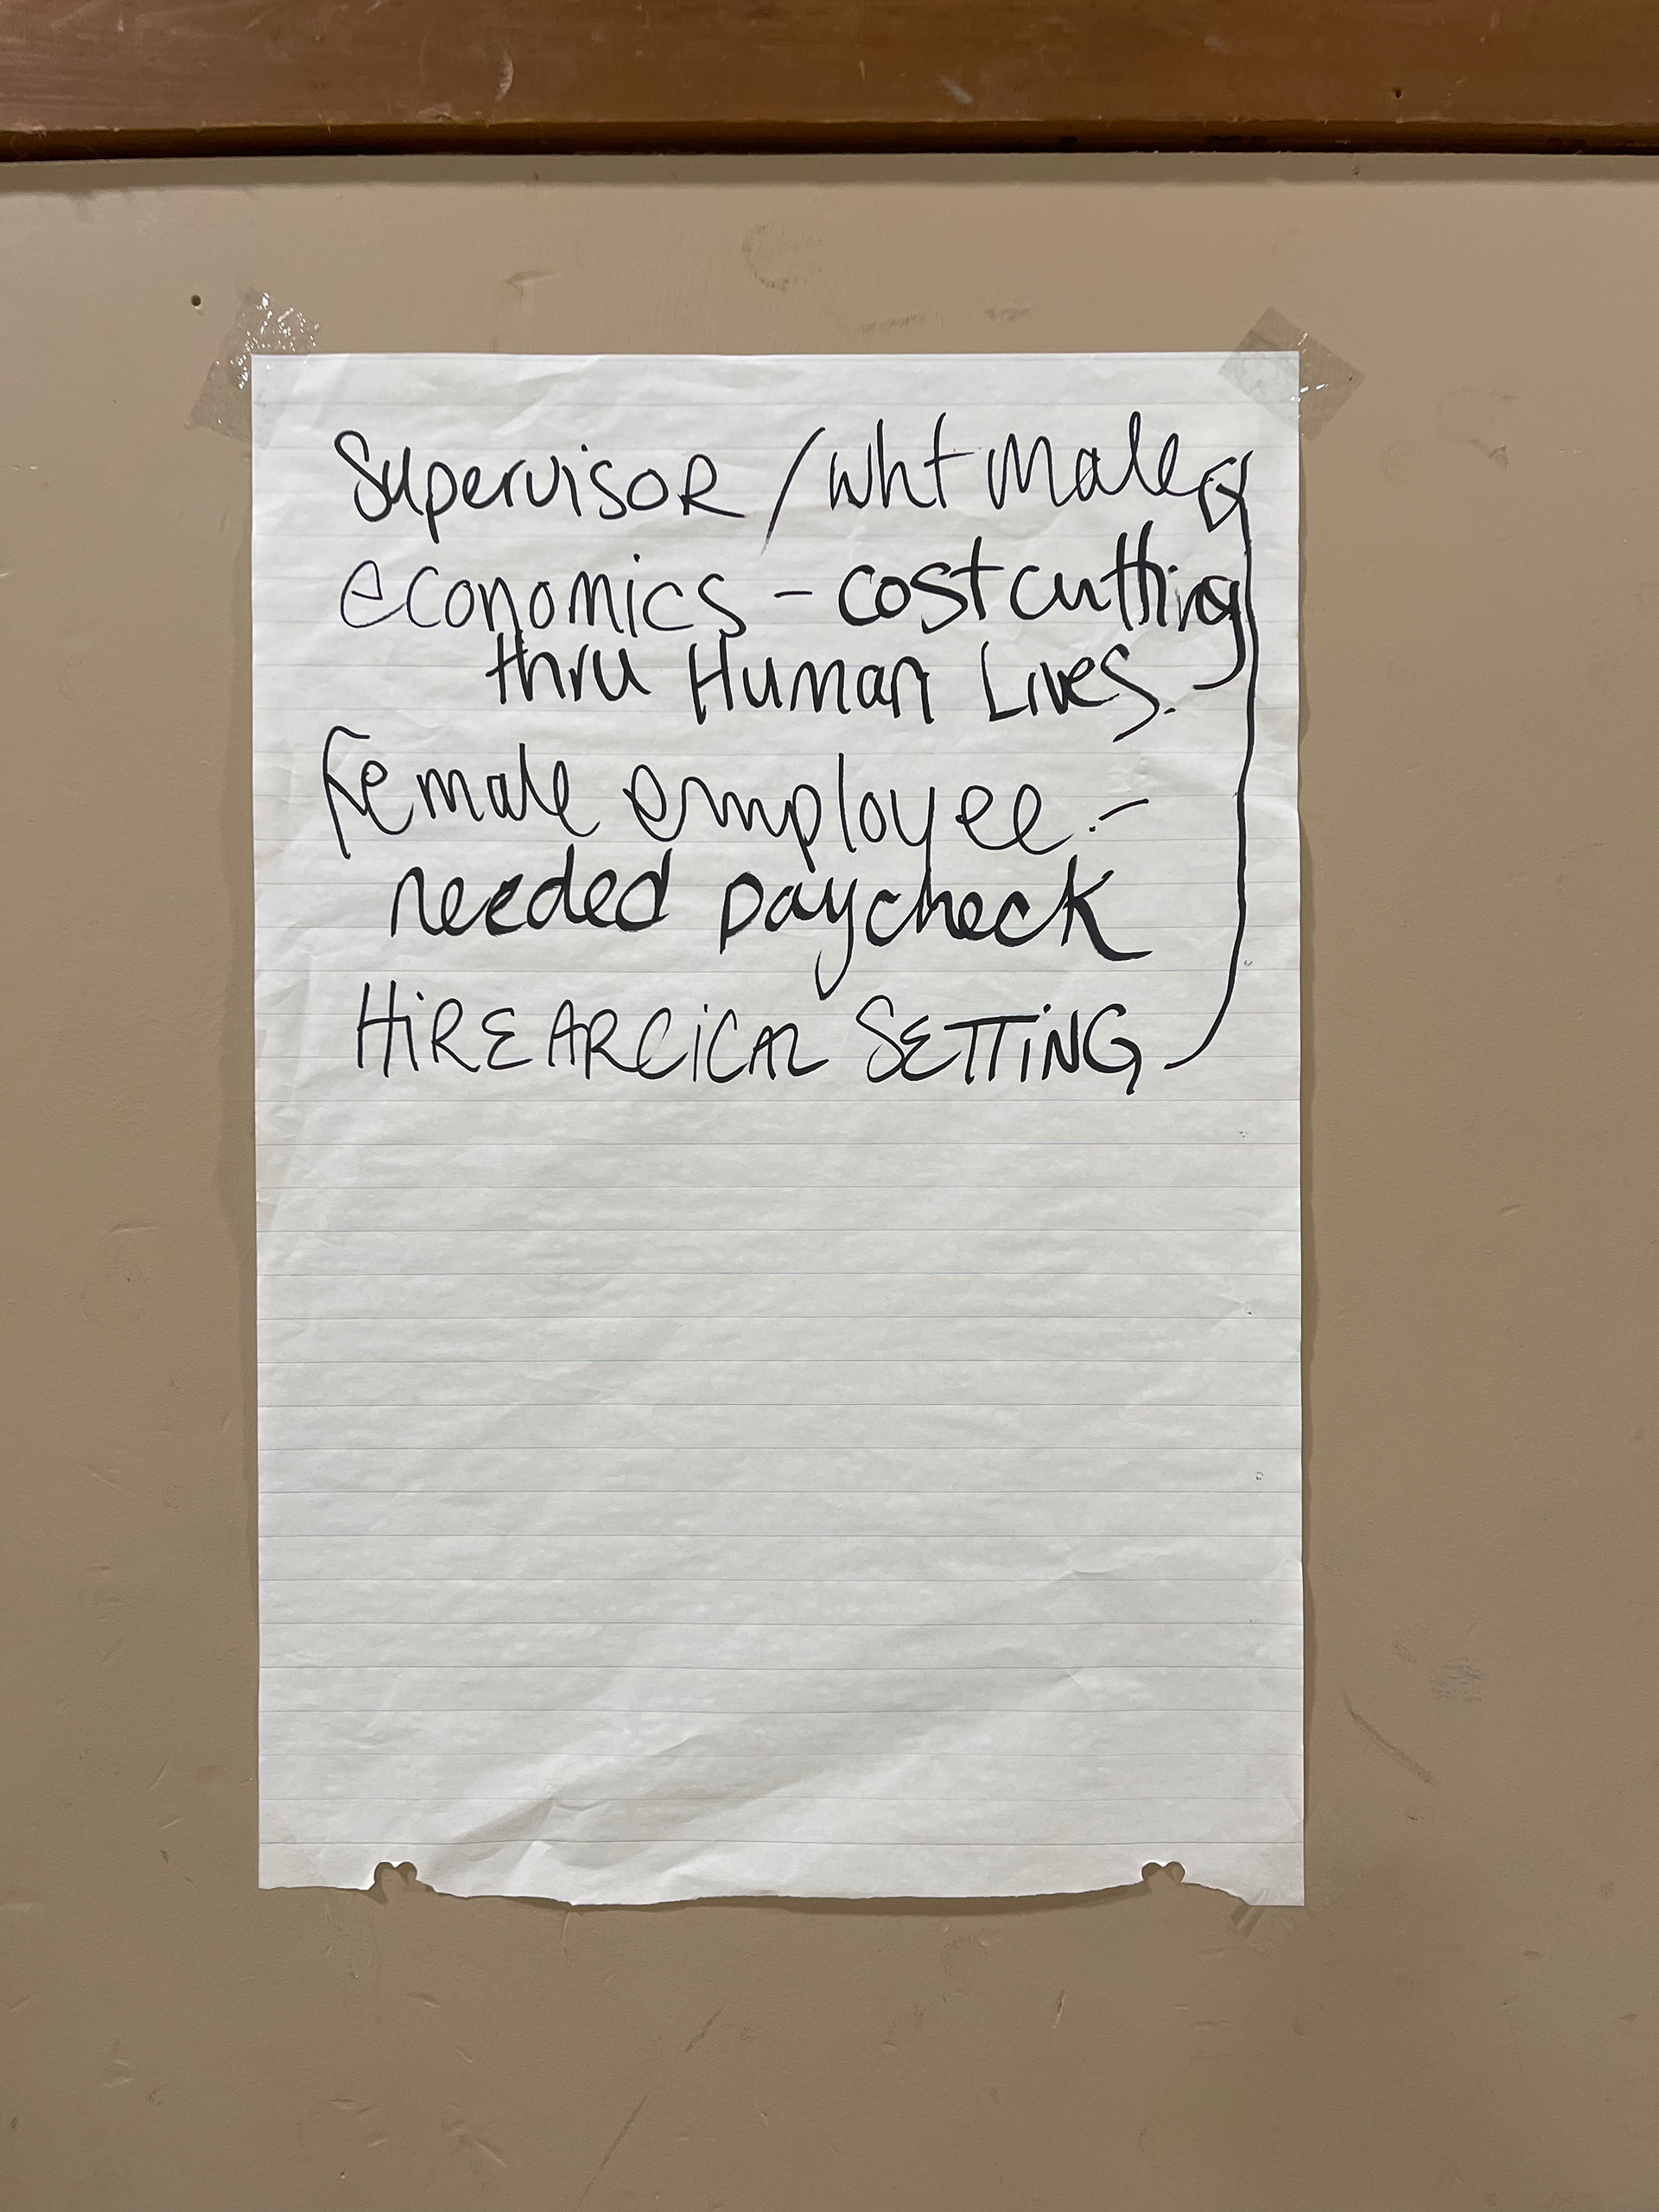 Supervisor / wht male
economics - cost cutting
thru Human Lives.
Female employee -
needed paycheck
HiREARCiCAL SETTiNG